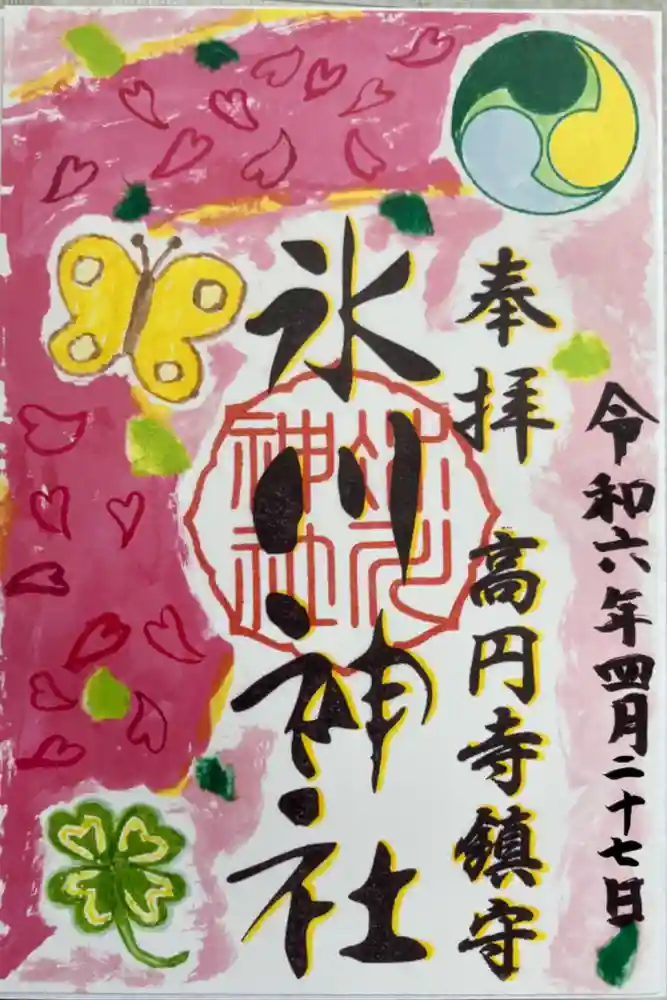 令和六年四月二十七日
奉拝 高円寺鎮守
氷川神社
氷川
神社